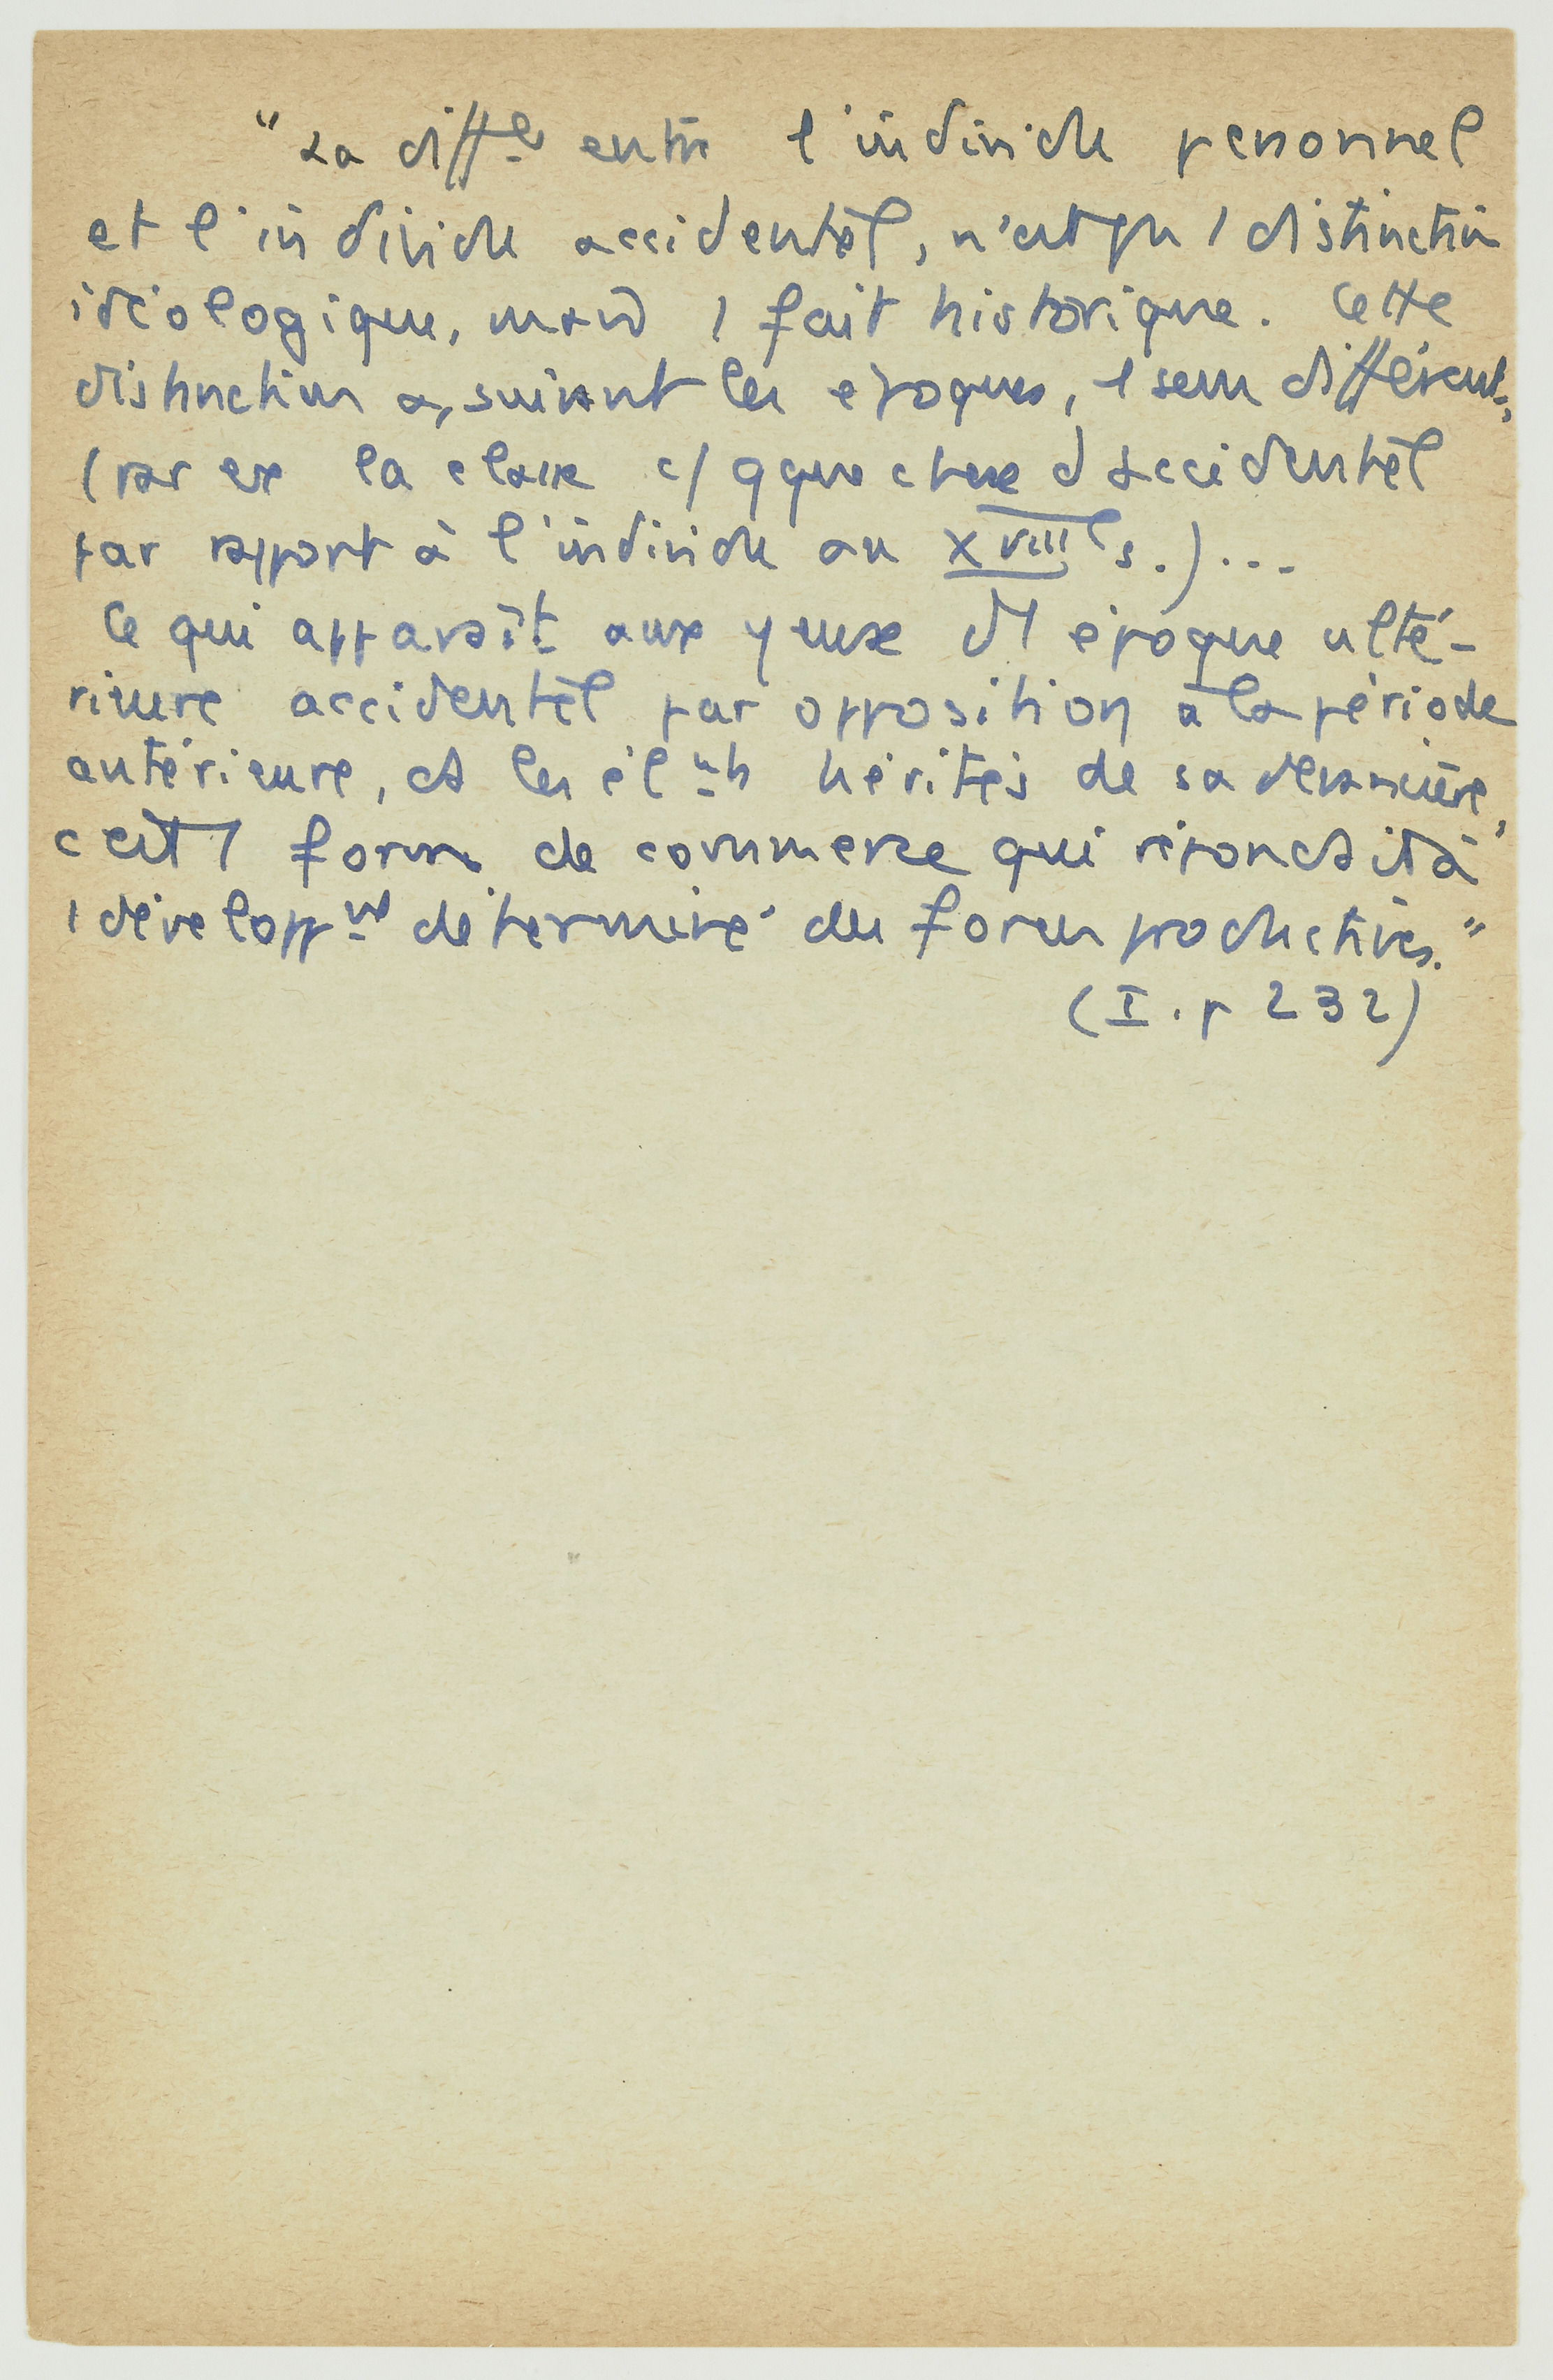 "La diff^ce entre l'individu personnel
et l'individu accidentel, n'est pas 1 distinction
idéologique, mais 1 fait historique. Cette
distinction a, suivant les époques, 1 sens différent,
(par ex la classe c/ qque chose d'accidentel
par rapport à l'individu au XVIIIe s.)...
Ce qui apparaît aux yeux d'1 époque ulté-
rieure accidentel par opposition à la période
antérieure, et les él^nts hérités de sa devancière,
c'est 1 forme de commerce qui répondait à
1 développ^nt déterminé des forces productives."
(I. p 232)